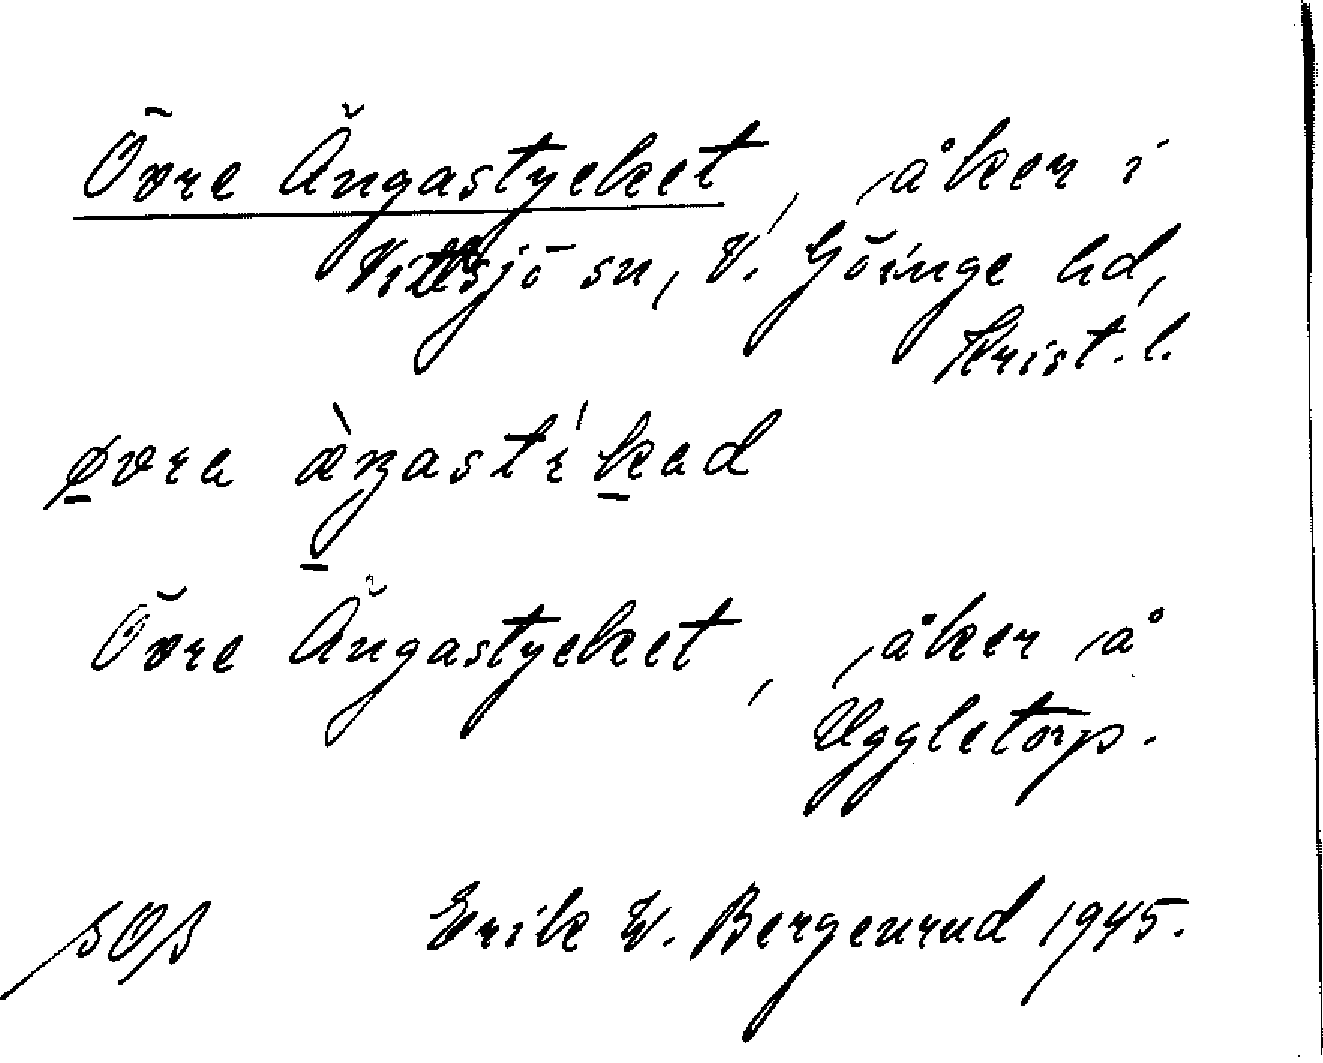 Övre Ängastycket, åker i
Vittsjö sn, V. Göinge hd,
Krist. l.
øvra æ̀ŋastíkad
Övre Ängastycket, åker å
Uggletorp.
Erik W. Bergenrud 1945.